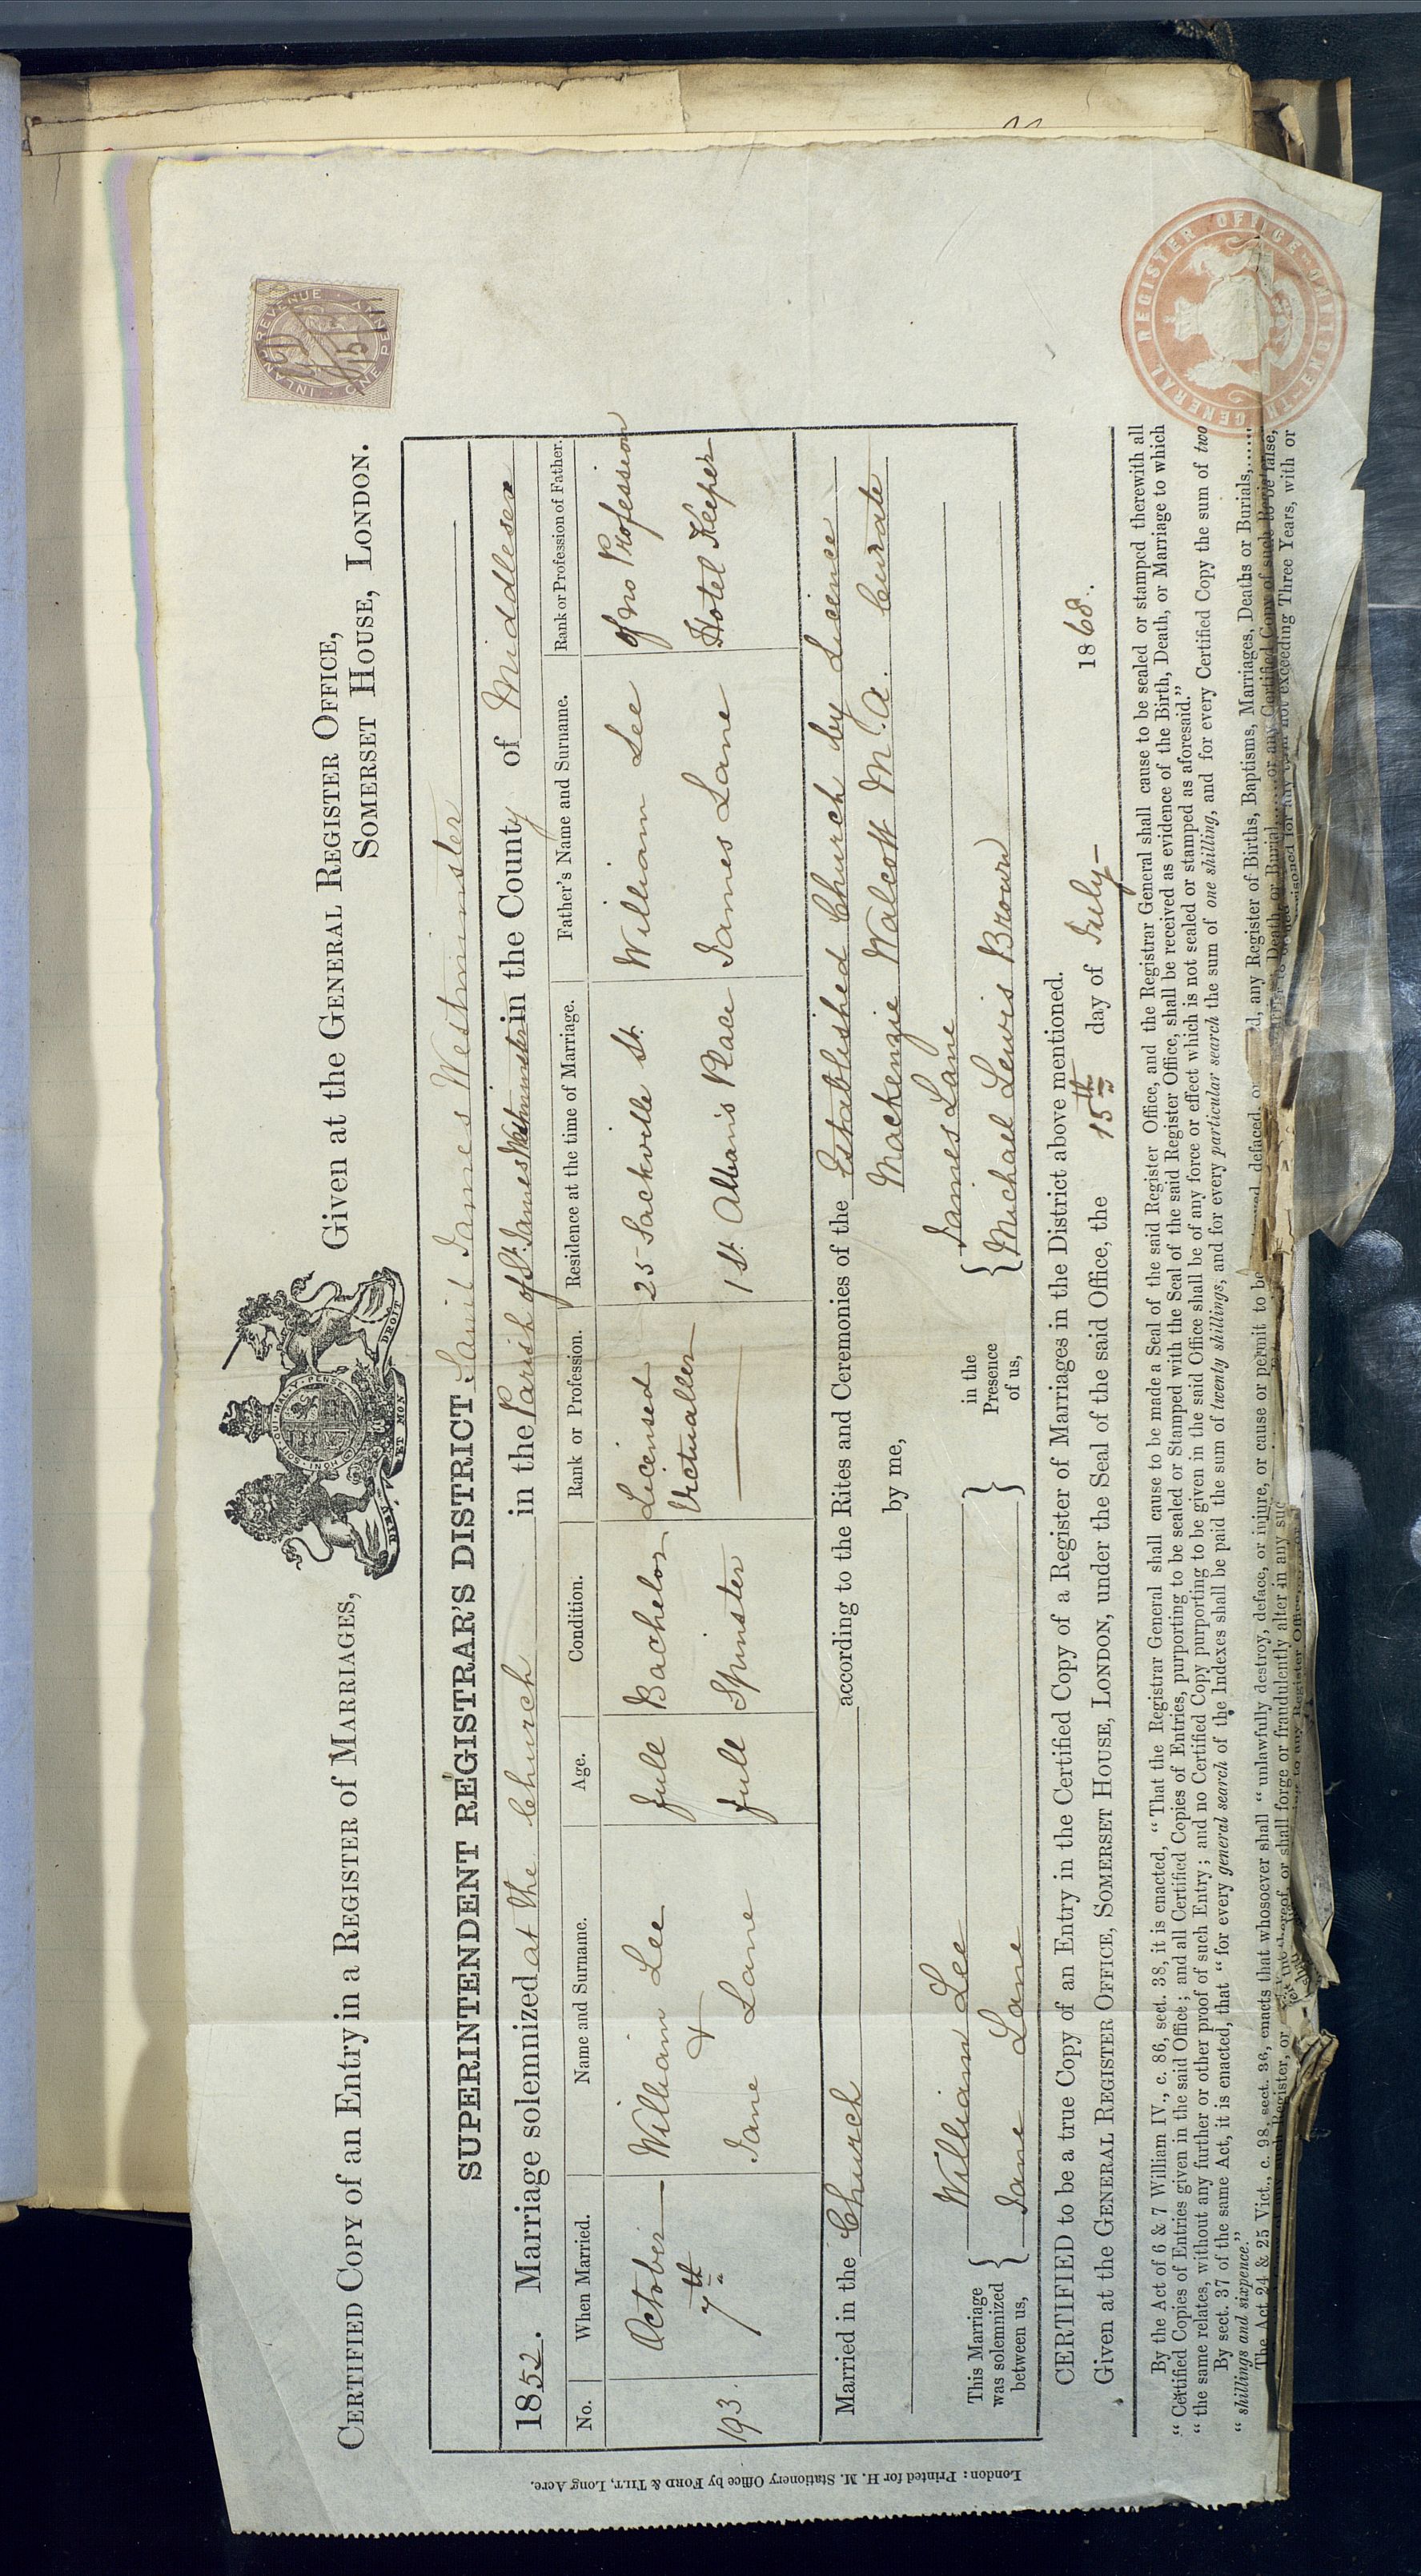 CERTIFIED COPY of an Entry in a REGISTER of MARRIAGES,
Given at the GENERAL REGISTER OFFICE,
SOMERSET HOUSE, LONDON.
HONI·SOIT·QUI·MAL·Y·PENSE
DIEU ET MON DROIT
INLAND REVENUE · ONE PENNY
15
SUPERINTENDENT REGISTRAR'S DISTRICT Saint James Westminster
1852. Marriage solemnized at the Church in the Parish of St. James Westminster in the County of Middlesex
No. When Married. Name and Surname. Age. Condition. Rank or Profession. Residence at the time of Marriage. Father's Name and Surname. Rank or Profession of Father.
193. October 7th William Lee full Bachelor Licensed Victualler 25 Sackville St. William Lee of no Profession
&
Jane Lane full Spinster 1 St. Alban's Place James Lane Hotel Keeper
Married in the Church according to the Rites and Ceremonies of the Established Church by Licence
by me, Mackenzie Walcott M.A. Curate
This Marriage was solemnized between us, { William Lee } in the Presence of us, { James Lane
Jane Lane Michael Lewis Brown
CERTIFIED to be a true Copy of an Entry in the Certified Copy of a Register of Marriages in the District above mentioned.
Given at the GENERAL REGISTER OFFICE, SOMERSET HOUSE, LONDON, under the Seal of the said Office, the 15th day of July 1868.
By the Act of 6 & 7 William IV., c. 86, sect. 38, it is enacted, "That the Registrar General shall cause to be made a Seal of the said Register Office, and the Registrar General shall cause to be sealed or stamped therewith all
"Certified Copies of Entries given in the said Office; and all Certified Copies of Entries, purporting to be sealed or Stamped with the Seal of the said Register Office, shall be received as evidence of the Birth, Death, or Marriage to which
"the same relates, without any further or other proof of such Entry; and no Certified Copy purporting to be given in the said Office shall be of any force or effect which is not sealed or stamped as aforesaid."
By sect. 37 of the same Act, it is enacted, that "for every general search of the Indexes shall be paid the sum of twenty shillings, and for every particular search the sum of one shilling, and for every Certified Copy the sum of two
"shillings and sixpence."
The Act 24 & 25 Vict., c. 98, sect. 36, enacts that whosoever shall "unlawfully destroy, deface, or injure, or cause or permit to be defaced, or any Register of Births, Baptisms, Marriages, Deaths or Burials,......
such Register, or shall forge or fraudulently alter in any such Death, or Burial,......or any Certified Copy of such Register false,
not exceeding Three Years, with or
GENERAL REGISTER OFFICE · ONE-TH
London: Printed for H. M. Stationery Office by FORD & TILT, Long Acre.